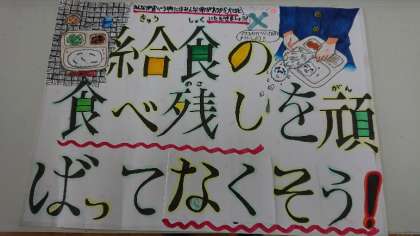 きゅう しょく
給食の
のこ がん
食べ残しを頑
ばってなくそう!